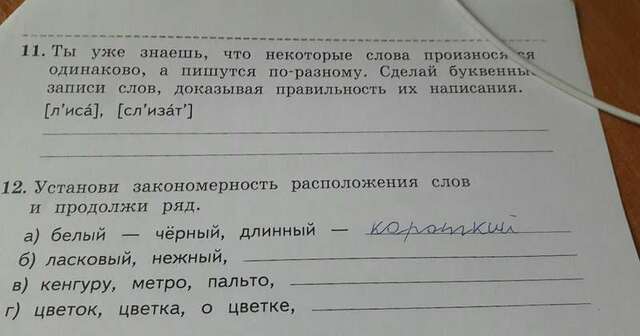 11. Ты уже знаешь, что некоторые слова произносятся
одинаково, а пишутся по-разному. Сделай буквенные
записи слов, доказывая правильность их написания.
[л'иса́], [сл'иза́т']
12. Установи закономерность расположения слов
и продолжи ряд.
а) белый — чёрный, длинный — короткий
б) ласковый, нежный,
в) кенгуру, метро, пальто,
г) цветок, цветка, о цветке,